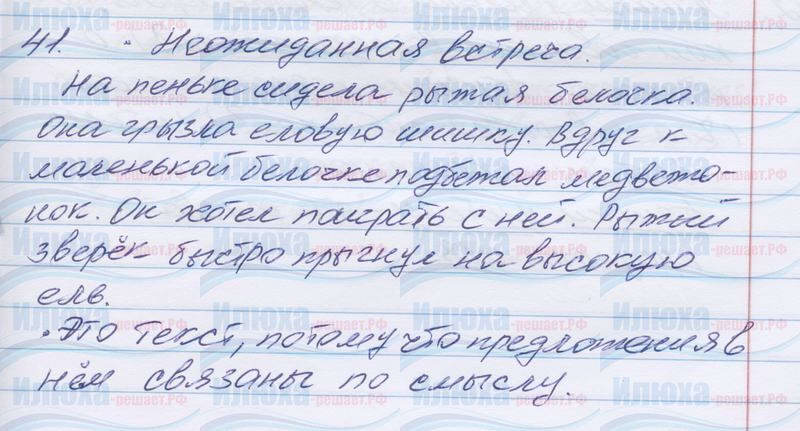 41. • Неожиданная встреча.
На пеньке сидела рыжая белочка.
Она грызла еловую шишку. Вдруг к
маленькой белочке подбежал медвежо-
нок. Он хотел поиграть с ней. Рыжий
зверёк быстро прыгнул на высокую
ель.
• Это текст, потому что предложения в
нём связаны по смыслу.
Илюха-решает.РФ